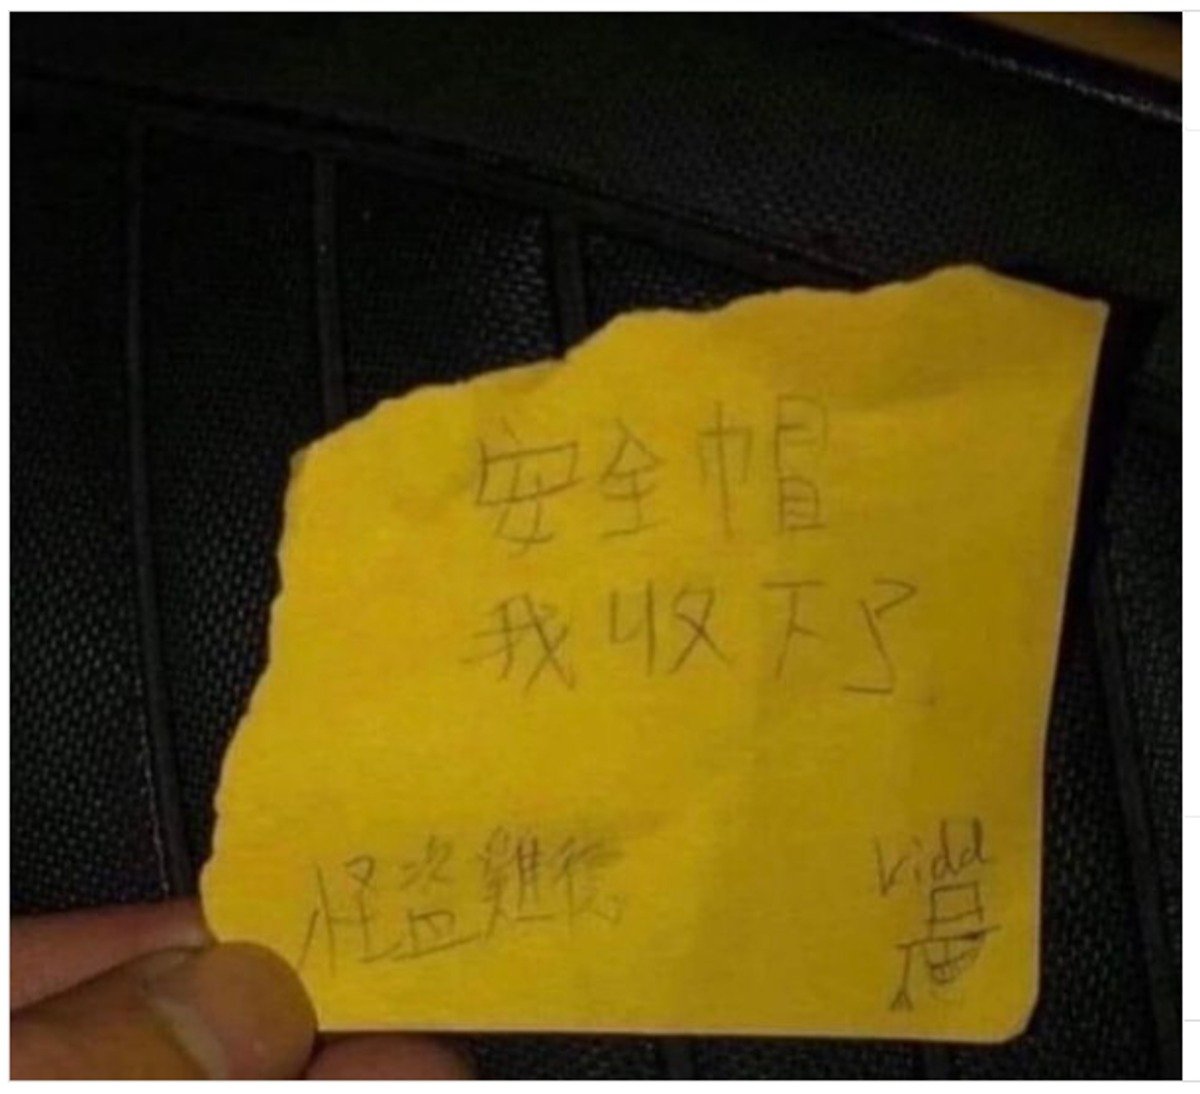 安全帽
我收下了
怪盜雞德
kidd